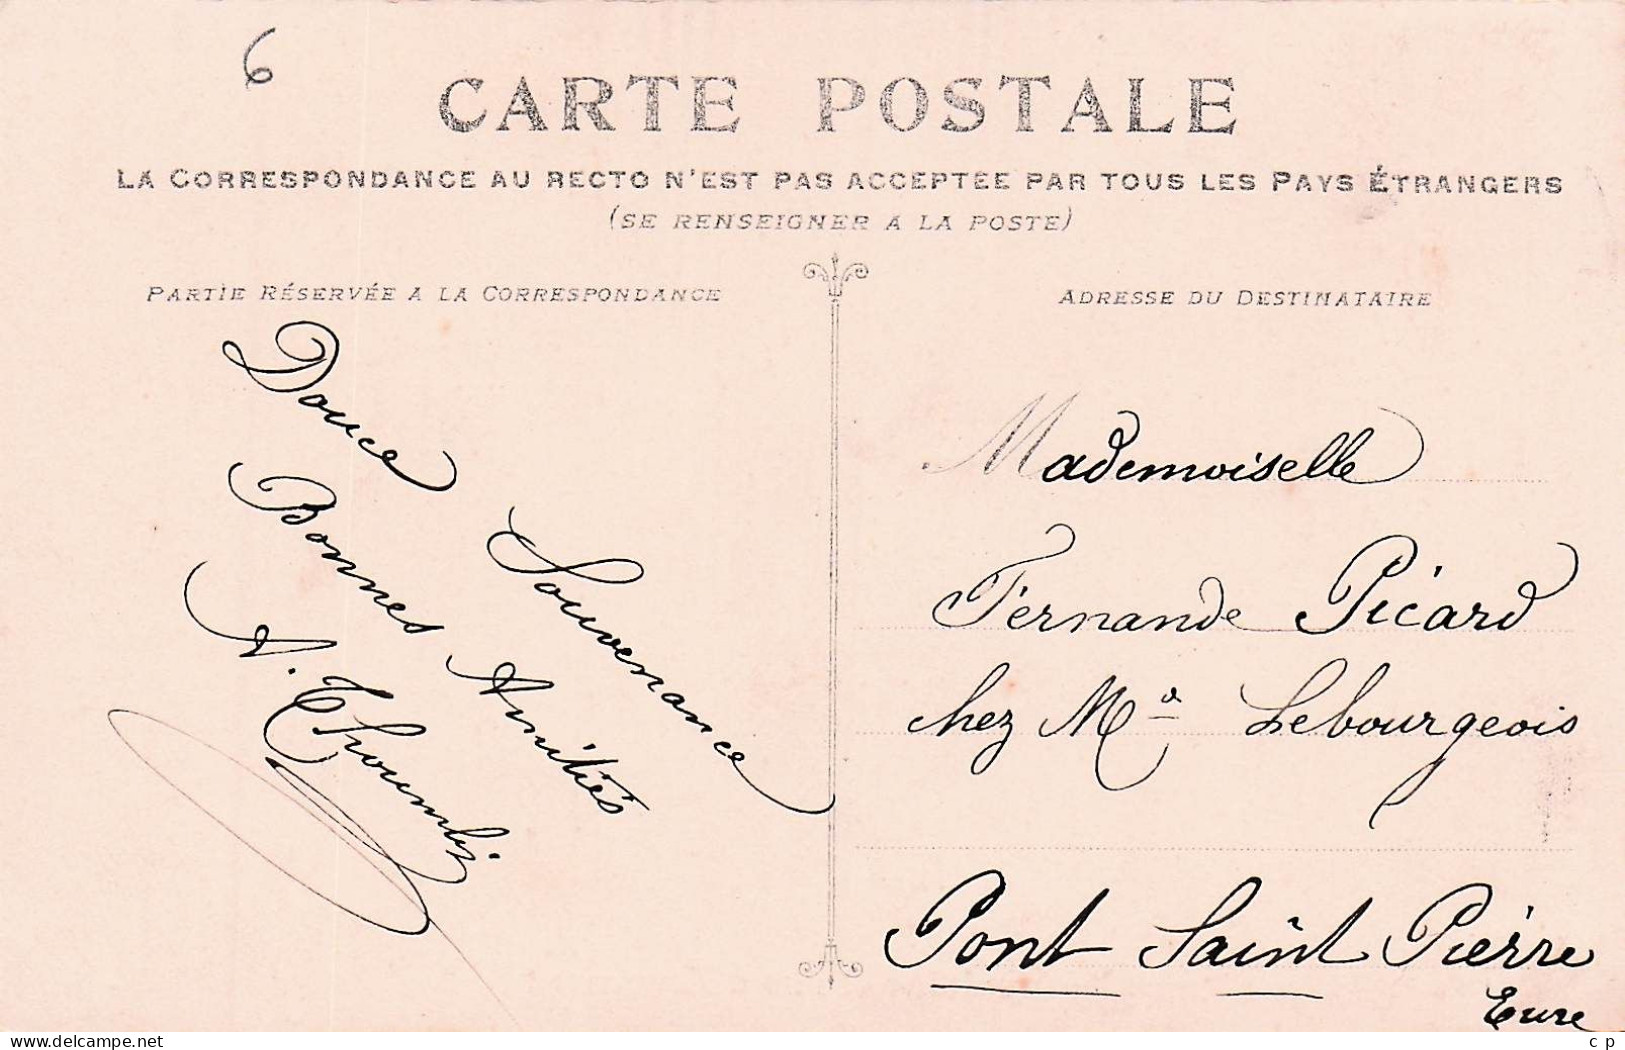 6
CARTE POSTALE
LA CORRESPONDANCE AU RECTO N'EST PAS ACCEPTÉE PAR TOUS LES PAYS ÉTRANGERS
(SE RENSEIGNER A LA POSTE)
PARTIE RÉSERVÉE A LA CORRESPONDANCE
Douce Souvenance
Bonnes Amitiés
A.
ADRESSE DU DESTINATAIRE
Mademoiselle
Fernande Picard
chez Md Lebourgeois
Pont Saint Pierre
Eure
www.delcampe.net
c p